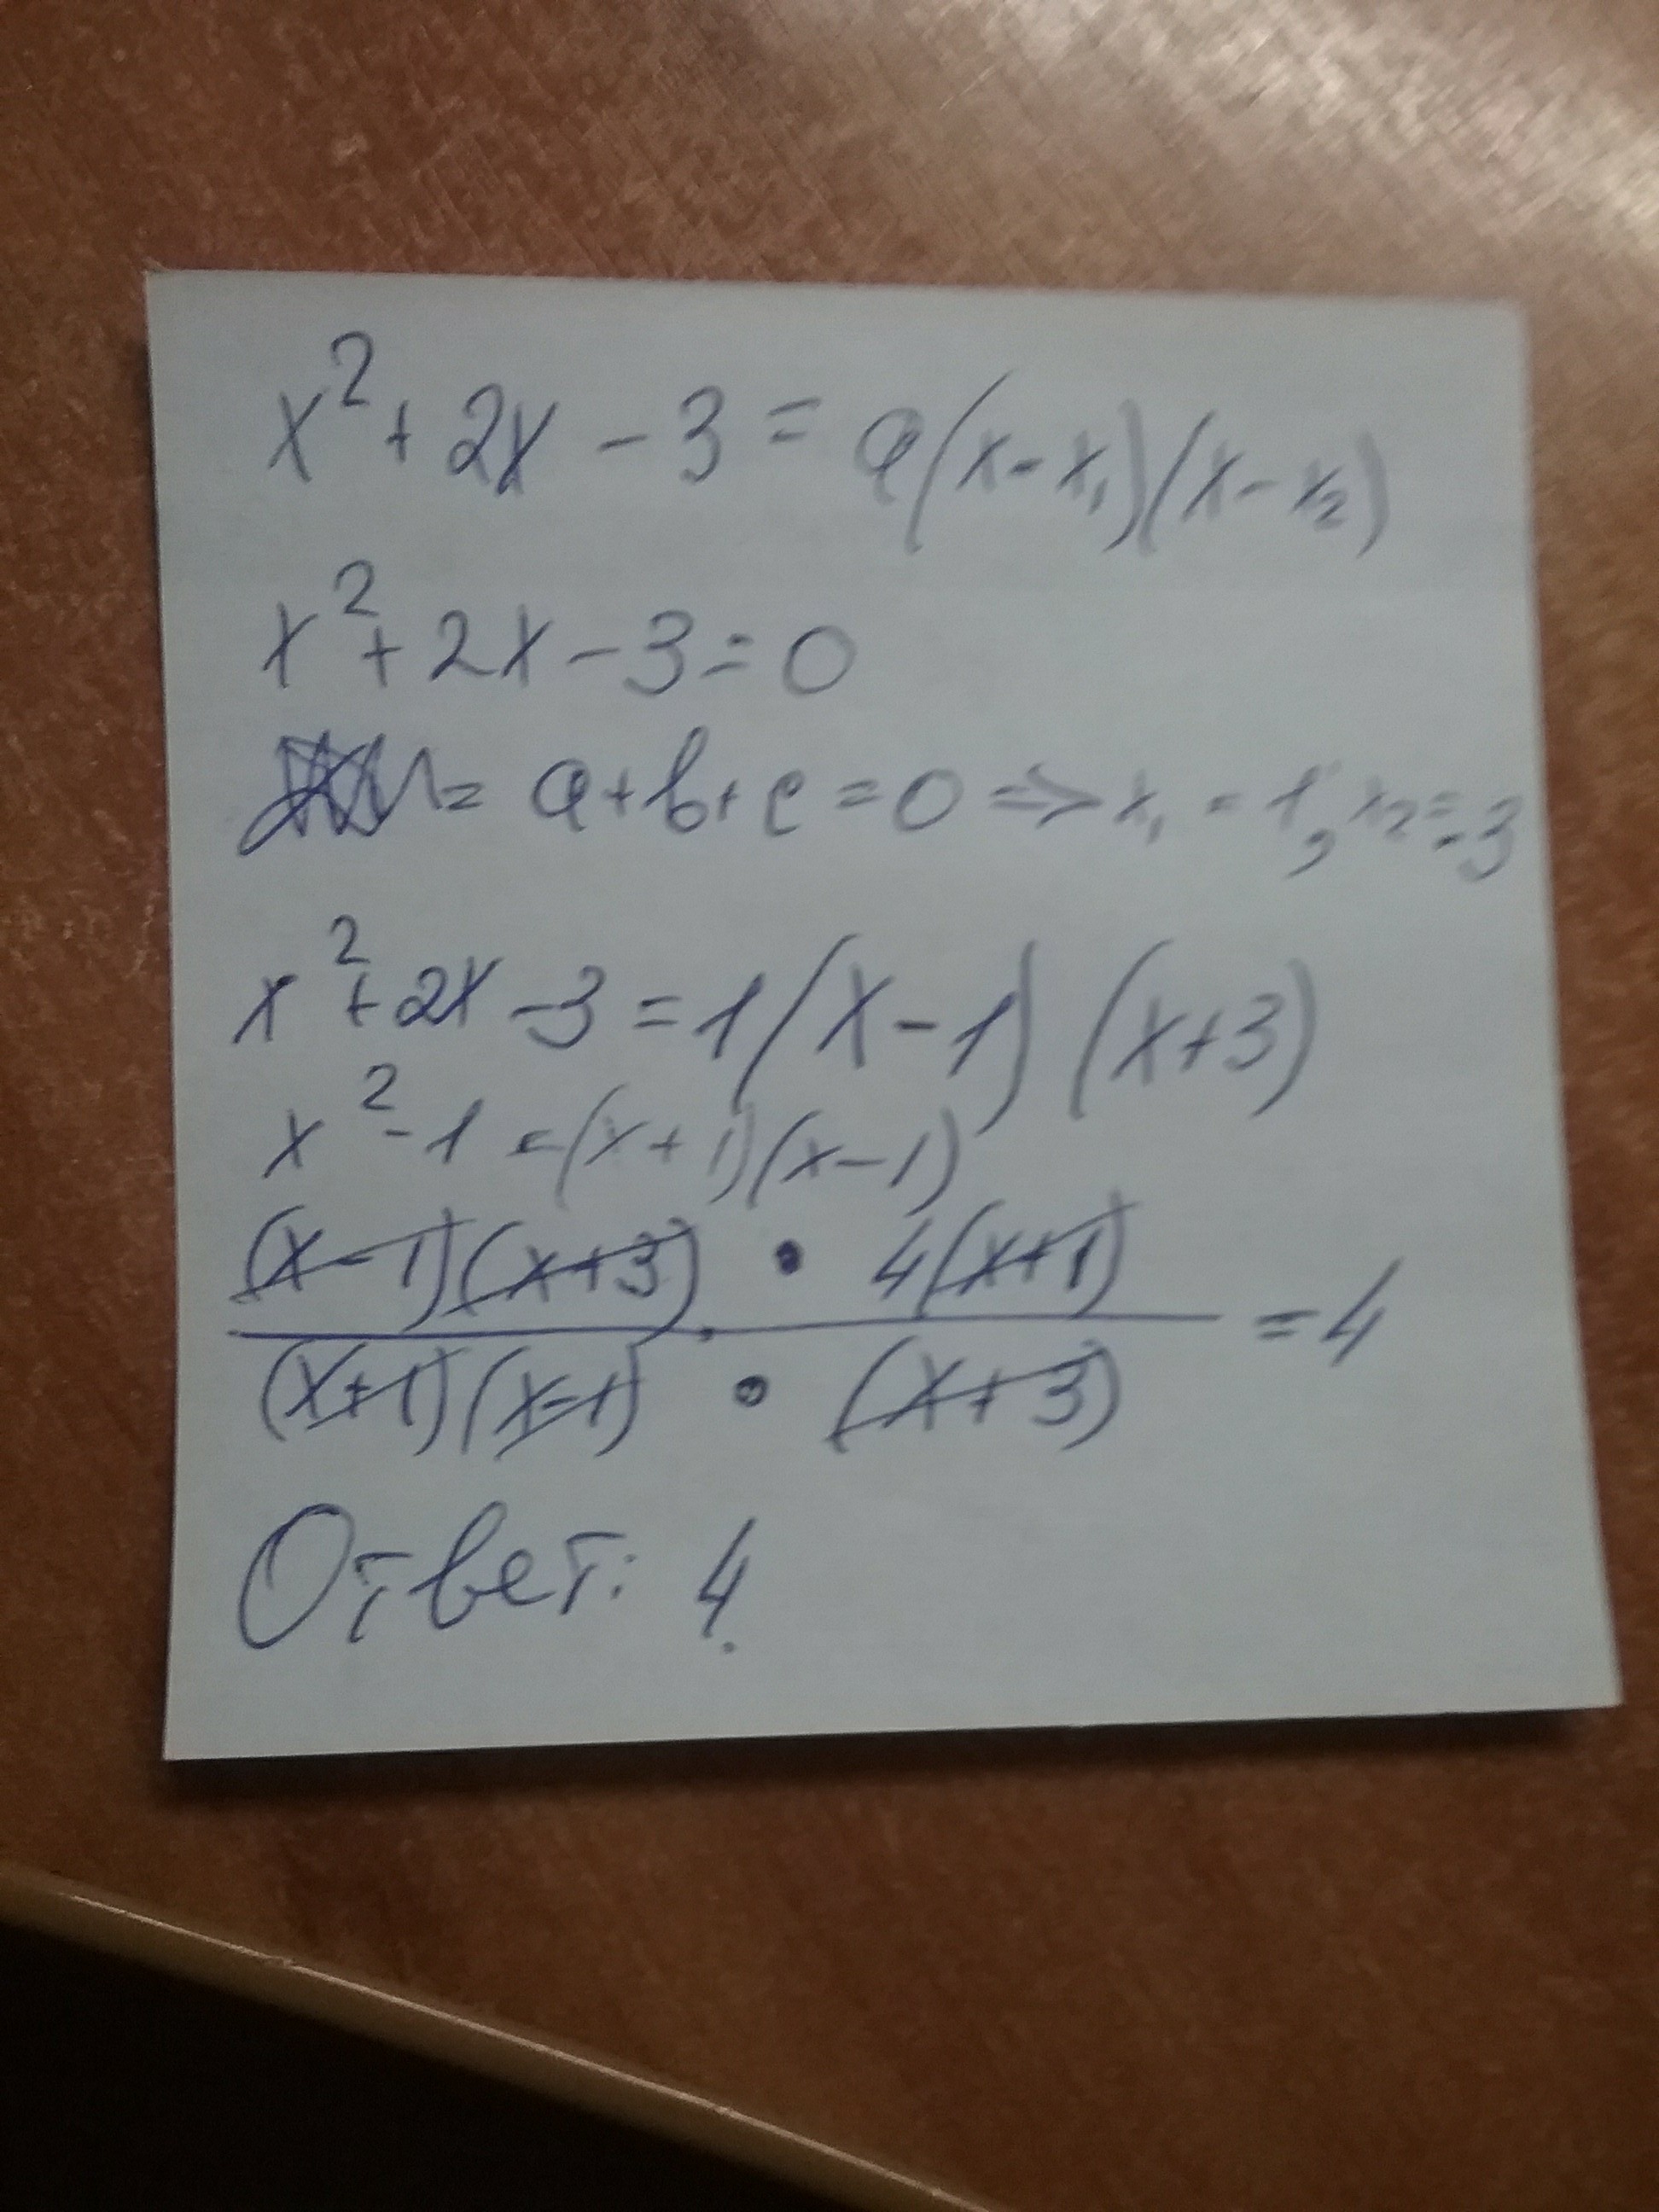 x² + 2x - 3 = a(x - x₁)(x - x₂)
x² + 2x - 3 = 0
= a + b + c = 0 => x₁ = 1, x₂ = -3
x² + 2x - 3 = 1(x - 1)(x + 3)
x² - 1 = (x + 1)(x - 1)
(x - 1)(x + 3) • 4(x + 1)
= 4
(x + 1)(x - 1) • (x + 3)
Ответ: 4.